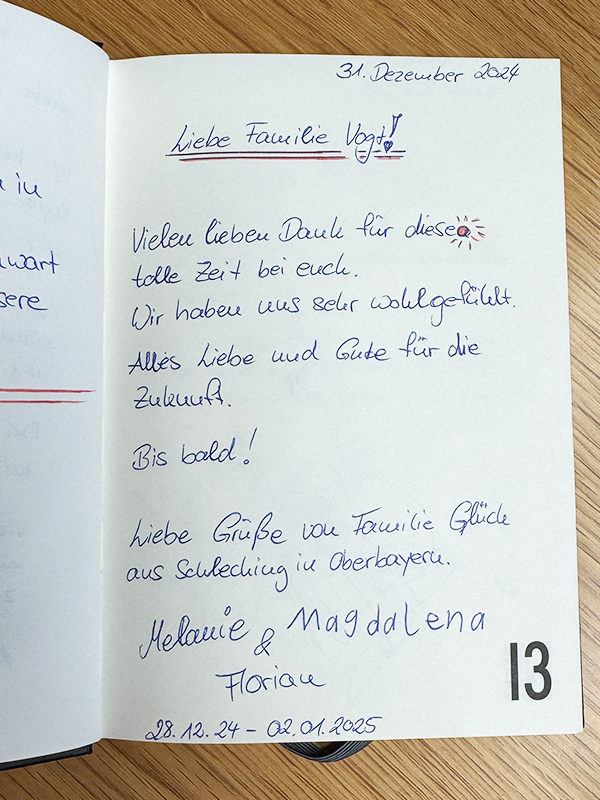 in
wart
sere
31. Dezember 2024
Liebe Familie Vogt!
Vielen lieben Dank für diese
tolle Zeit bei euch.
Wir haben uns sehr wohlgefühlt.
Alles Liebe und Gute für die
Zukunft.
Bis bald!
Liebe Grüße von Familie Glück
aus Schleching in Oberbayern.
Melanie & Magdalena
Florian
28.12.24 – 02.01.2025
13